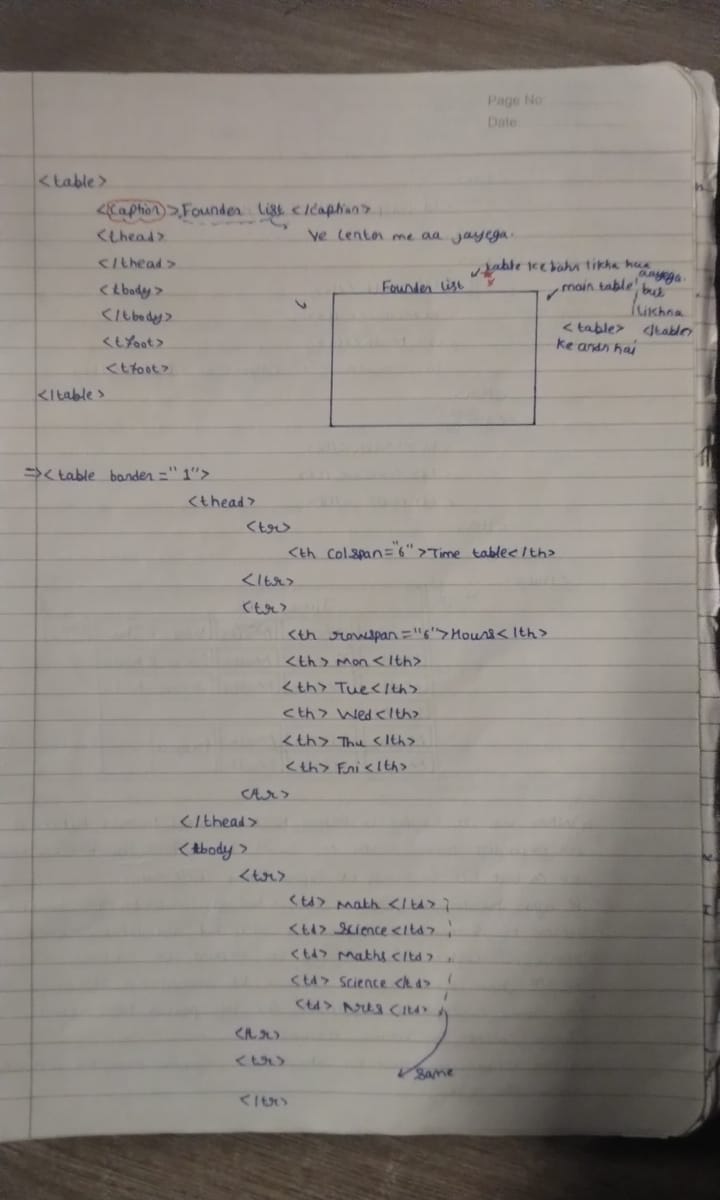 Page No
Date
<table>
<caption> Founder list </caption>
<thead> Ye center me aa jayega.
</thead>
<tbody>
</tbody>
<tfoot>
<tfoot>
</table>
table ke bahr likha hua aayega.
Founder list
main table but
likhna
<table> </table>
ke andr hai
=><table border="1">
<thead>
<tr>
<th colspan="6">Time table</th>
</tr>
<tr>
<th rowspan="6">Hours</th>
<th> Mon </th>
<th> Tue </th>
<th> Wed </th>
<th> Thu </th>
<th> Fri </th>
</tr>
</thead>
<tbody>
<tr>
<td> Math </td>
<td> Science </td>
<td> Maths </td>
<td> Science </td>
<td> Arts </td>
</tr>
<tr>
same
</tr>